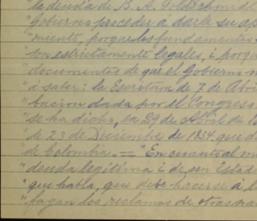 la deuda de B. A. Goldschmidt
"Gobierno proceder a darle su ap
"miento, porque los fundamentos
"son estrictamente legales, i porq
"documentos de que el Gobierno n
"á saber: la Escritura de 7 de Abri
"bacion dada por el Congreso
"se ha dicho, la 29 de Abril de 1
"de 23 de Diciembre de 1834 que d
"de Colombia. — "En cuanto al m
"deuda lejítima i de son Estado
"que habla, que debe hacerse a l
"pagan los reclamos de otras nac